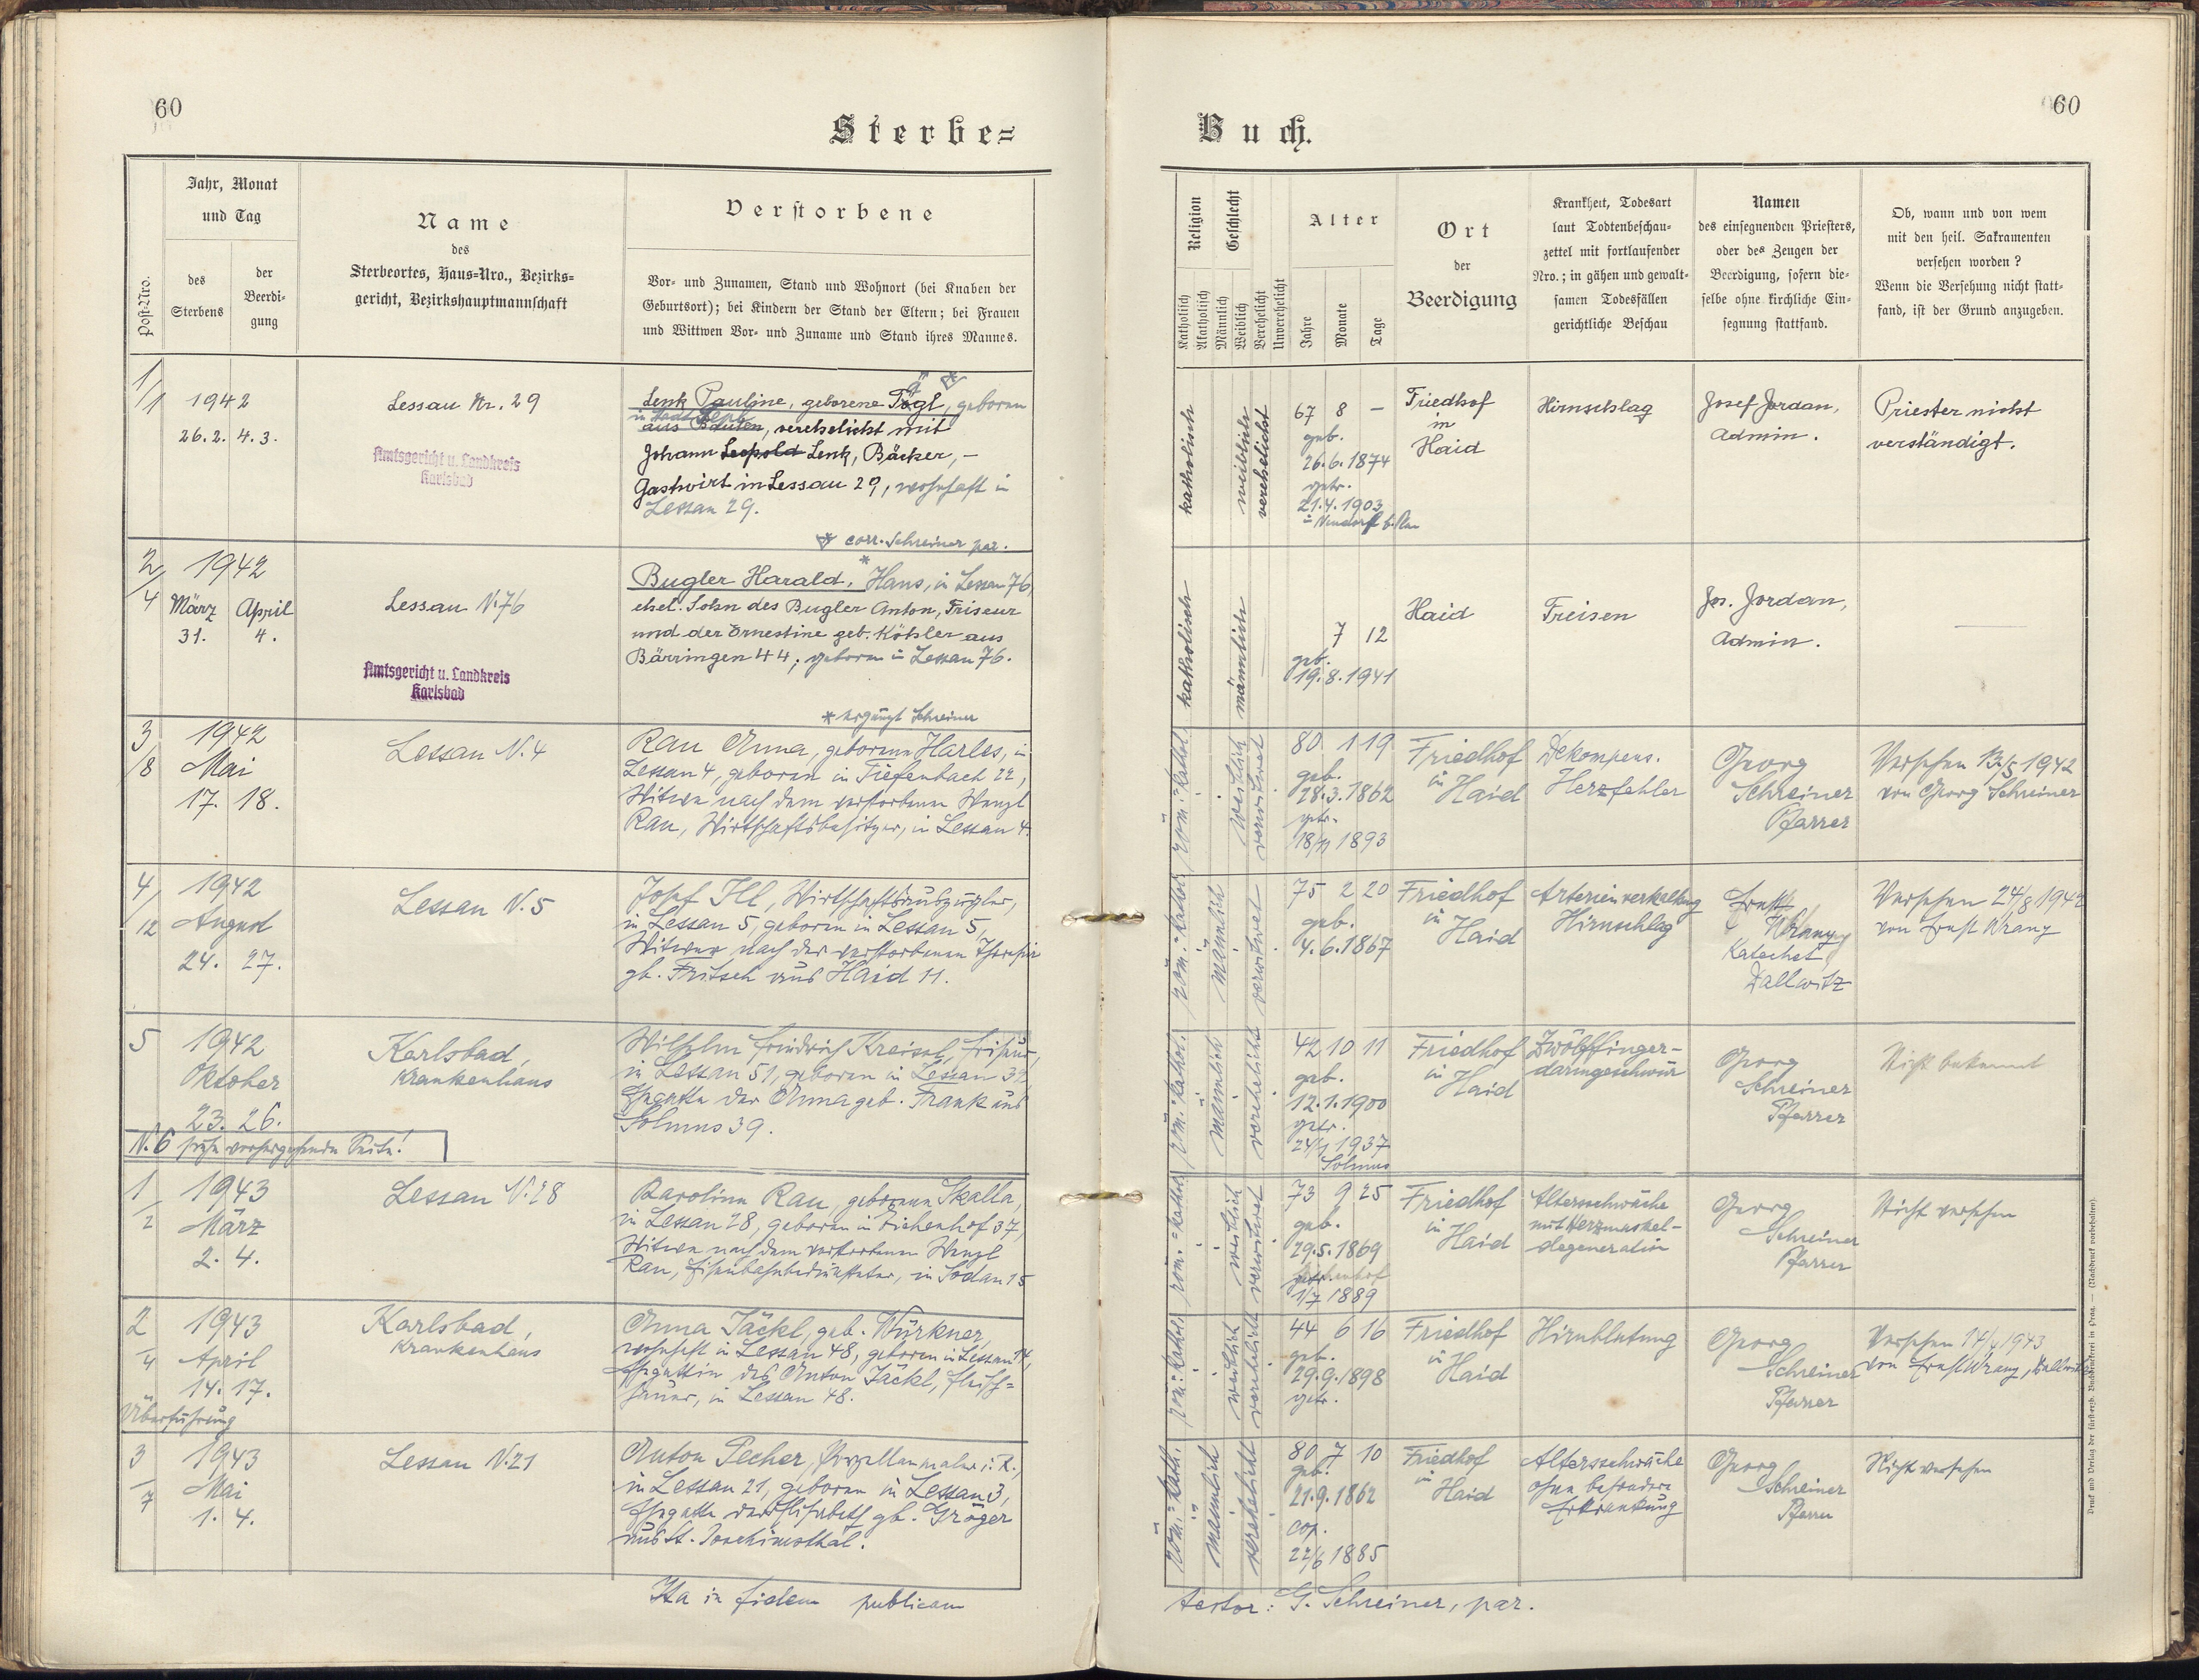 60
Sterbe=
Jahr, Monat
und Tag
Post-Nro.
des
Sterbens
der
Beerdi-
gung
Name
des
Sterbeortes, Haus=Nro., Bezirks=
gericht, Bezirkshauptmannschaft
Verstorbene
Vor- und Zunamen, Stand und Wohnort (bei Knaben der
Geburtsort); bei Kindern der Stand der Eltern; bei Frauen
und Wittwen Vor- und Zuname und Stand ihres Mannes.
1/1
1942
26.2. 4.3.
Lessau Nr. 29
Amtsgericht u. Landkreis
Karlsbad
Lenk Pauline, geborene Tögl, geboren
verehelicht mit
Johann Leopold Lenk, Bäcker, –
Gastwirt in Lessau 29, wohnhaft in
Lessau 29.
corr. Schreiner par.
2/4
1942
März April
31. 4.
Lessau N. 76
Amtsgericht u. Landkreis
Karlsbad
Bugler Harald, * Hans, in Lessau 76,
ehel. Sohn des Bugler Anton, Friseur
und der Ernestine geb. Köhler aus
Bärringen 44; geboren in Lessau 76.
* ergänzt Schreiner
3/8
1942
Mai
17. 18.
Lessau N. 4
Rau Anna, geborene Harles, in
Lessau 4, geboren in Tiefenbach 22,
Witwe nach dem verstorbenen Wenzl
Rau, Wirtschaftsbesitzer, in Lessau 4.
4/12
1942
August
24. 27.
Lessau N. 5
Josef Ill, Wirtschaftsauszügler,
in Lessau 5, geboren in Lessau 5,
Witwer nach der verstorbenen Theresia
gb. Fritsch aus Haid 11.
5
1942
Oktober
23. 26.
Karlsbad,
Krankenhaus
Wilhelm Friedrich Kreisel, Friseur,
in Lessau 51, geboren in Lessau 32,
Ehegatte der Anna geb. Frank aus
Solmus 39.
N. 6 siehe vorhergehende Seite!
1/2
1943
März
2. 4.
Lessau N. 28
Karolina Rau, geborene Skalla,
in Lessau 28, geboren in Eichenhof 37,
Witwe nach dem verstorbenen Wenzl
Rau, Eisenbahnbediensteter, in Sodau 15
2/4
1943
April
14. 17.
Überführung
Karlsbad,
Krankenhaus
Anna Jäckl, geb. Würkner,
wohnhaft in Lessau 48, geboren in Lessau 14,
Ehegattin des Anton Jäckl, Fleisch=
hauer, in Lessau 48.
3/7
1943
Mai
1. 4.
Lessau N. 21
Anton Pecher, Porzellanmaler i. R.,
in Lessau 21, geboren in Lessau 3,
Ehegatte der Elisabeth gb. Gröger
aus St. Joachimsthal.
Ita in fidem publicam
60
Buch.
Religion
Geschlecht
Katholisch
Akatholisch
Männlich
Weiblich
Verehelicht
Unverehelicht
Alter
Jahre
Monate
Tage
Ort
der
Beerdigung
Krankheit, Todesart
laut Todtenbeschau-
zettel mit fortlaufender
Nro.; in gähen und gewalt-
samen Todesfällen
gerichtliche Beschau
Namen
des einsegnenden Priesters,
oder des Zeugen der
Beerdigung, sofern die-
selbe ohne kirchliche Ein-
segnung stattfand.
Ob, wann und von wem
mit den heil. Sakramenten
versehen worden ?
Wenn die Versehung nicht statt-
fand, ist der Grund anzugeben.
katholisch
weiblich
verehelicht
67 8 –
geb.
26.6.1874
getr.
21.4.1903
in Neudorf b. Plan
Friedhof
in
Haid
Hirnschlag
Josef Jordan,
Admin.
Priester nicht
verständigt.
katholisch
männlich
7 12
geb.
19.8.1941
Haid
Freisen
Jos. Jordan,
Admin.
röm.-kathol.
weiblich
verwitwet
80 1 19
geb.
28.3.1862
getr.
18/11 1893
Friedhof
in
Haid
Dekompens.
Herzfehler
Georg
Schreiner
Pfarrer
Versehen 13/5 1942
von Georg Schreiner
röm.-kathol.
männlich
verwitwet
75 2 20
geb.
4.6.1867
Friedhof
in
Haid
Arterienverkalkung
Hirnschlag
Ernst
Wrany
Katechet
Dallwitz
Versehen 24/8 1942
von Ernst Wrany
röm.-kathol.
männlich
verehelicht
42 10 11
geb.
12.1.1900
getr.
24/1 1937
Solmus
Friedhof
in
Haid
Zwölffinger-
darmgeschwür
Georg
Schreiner
Pfarrer
Nicht bekannt
röm.-kathol.
weiblich
verwitwet
73 9 25
geb.
29.5.1869
getr.
1/7 1889
Friedhof
in
Haid
Altersschwäche
mit Herzmuskel-
degeneration
Georg
Schreiner
Pfarrer
Nicht versehen
röm.-kathol.
weiblich
verehelicht
44 6 16
geb.
29.9.1898
getr.
Friedhof
in
Haid
Hirnblutung
Georg
Schreiner
Pfarrer
Versehen 14/4 1943
von Ernst Wrany, Dallwitz
röm.-kath.
männlich
verehelicht
80 7 10
geb.
21.9.1862
cop.
22/6 1885
Friedhof
in
Haid
Altersschwäche
ohne besondere
Erkrankung
Georg
Schreiner
Pfarrer
Nicht versehen
testor: G. Schreiner, par.
Druck und Verlag der fürsterzb. Buchdruckerei in Prag. — (Nachdruck vorbehalten)